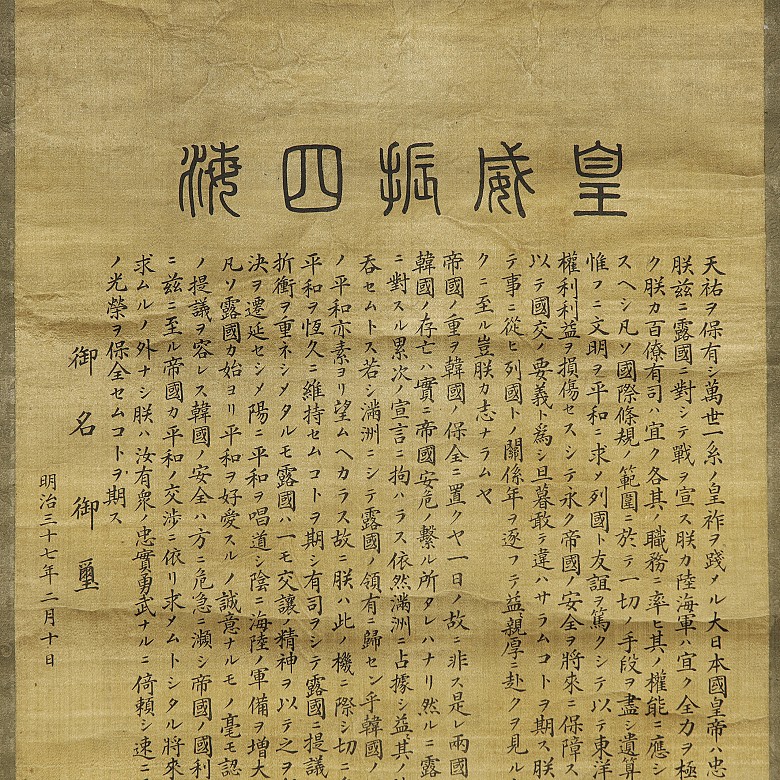 皇威振四海
天祐ヲ保有シ萬世一系ノ皇祚ヲ踐メル大日本國皇帝ハ忠
朕茲ニ露國ニ對シテ戰ヲ宣ス朕カ陸海軍ハ宜ク全力ヲ極
ク朕カ百僚有司ハ宜ク各其ノ職務ニ率ヒ其ノ權能ニ應シ
スヘシ凡ソ國際條規ノ範圍ニ於テ一切ノ手段ヲ盡シ遺算
惟フニ文明ヲ平和ニ求メ列國ト友誼ヲ篤クシテ以テ東洋
權利利益ヲ損傷セスシテ永ク帝國ノ安全ヲ將來ニ保障ス
以テ國交ノ要義ト爲シ旦暮敢テ違ハサラムコトヲ期ス朕
テ事ニ從ヒ列國トノ關係年ヲ逐フテ益親厚ニ赴クヲ見ル
クニ至ル豈朕カ志ナラムヤ
帝國ノ重ヲ韓國ノ保全ニ置クヤ一日ノ故ニ非ス是レ兩國
韓國ノ存亡ハ實ニ帝國安危ノ繫ル所タレハナリ然ルニ露
ニ對スル累次ノ宣言ニ拘ハラス依然滿洲ニ占據シ益其
吞セムトス若シ滿洲ニシテ露國ノ領有ニ歸セン乎韓國ノ
ノ平和亦素ヨリ望ムヘカラス故ニ朕ハ此ノ機ニ際シ切ニ
平和ヲ恆久ニ維持セムコトヲ期シ有司ヲシテ露國ニ提議
折衝ヲ重ネシメタルモ露國ハ一モ交讓ノ精神ヲ以テ之ヲ
決ヲ遷延セシメ陽ニ平和ヲ唱道シ陰ニ海陸ノ軍備ヲ增大
凡ソ露國カ始ヨリ平和ヲ好愛スルノ誠意ナルモノ毫モ認
ノ提議ヲ容レス韓國ノ安全ハ方ニ危急ニ瀕シ帝國ノ國利
ニ茲ニ至ル帝國カ平和ノ交渉ニ依リ求メムトシタル將來
求ムルノ外ナシ朕ハ汝有衆ノ忠實勇武ナルニ倚賴シ速ニ
ノ光榮ヲ保全セムコトヲ期ス
御名御璽
明治三十七年二月十日